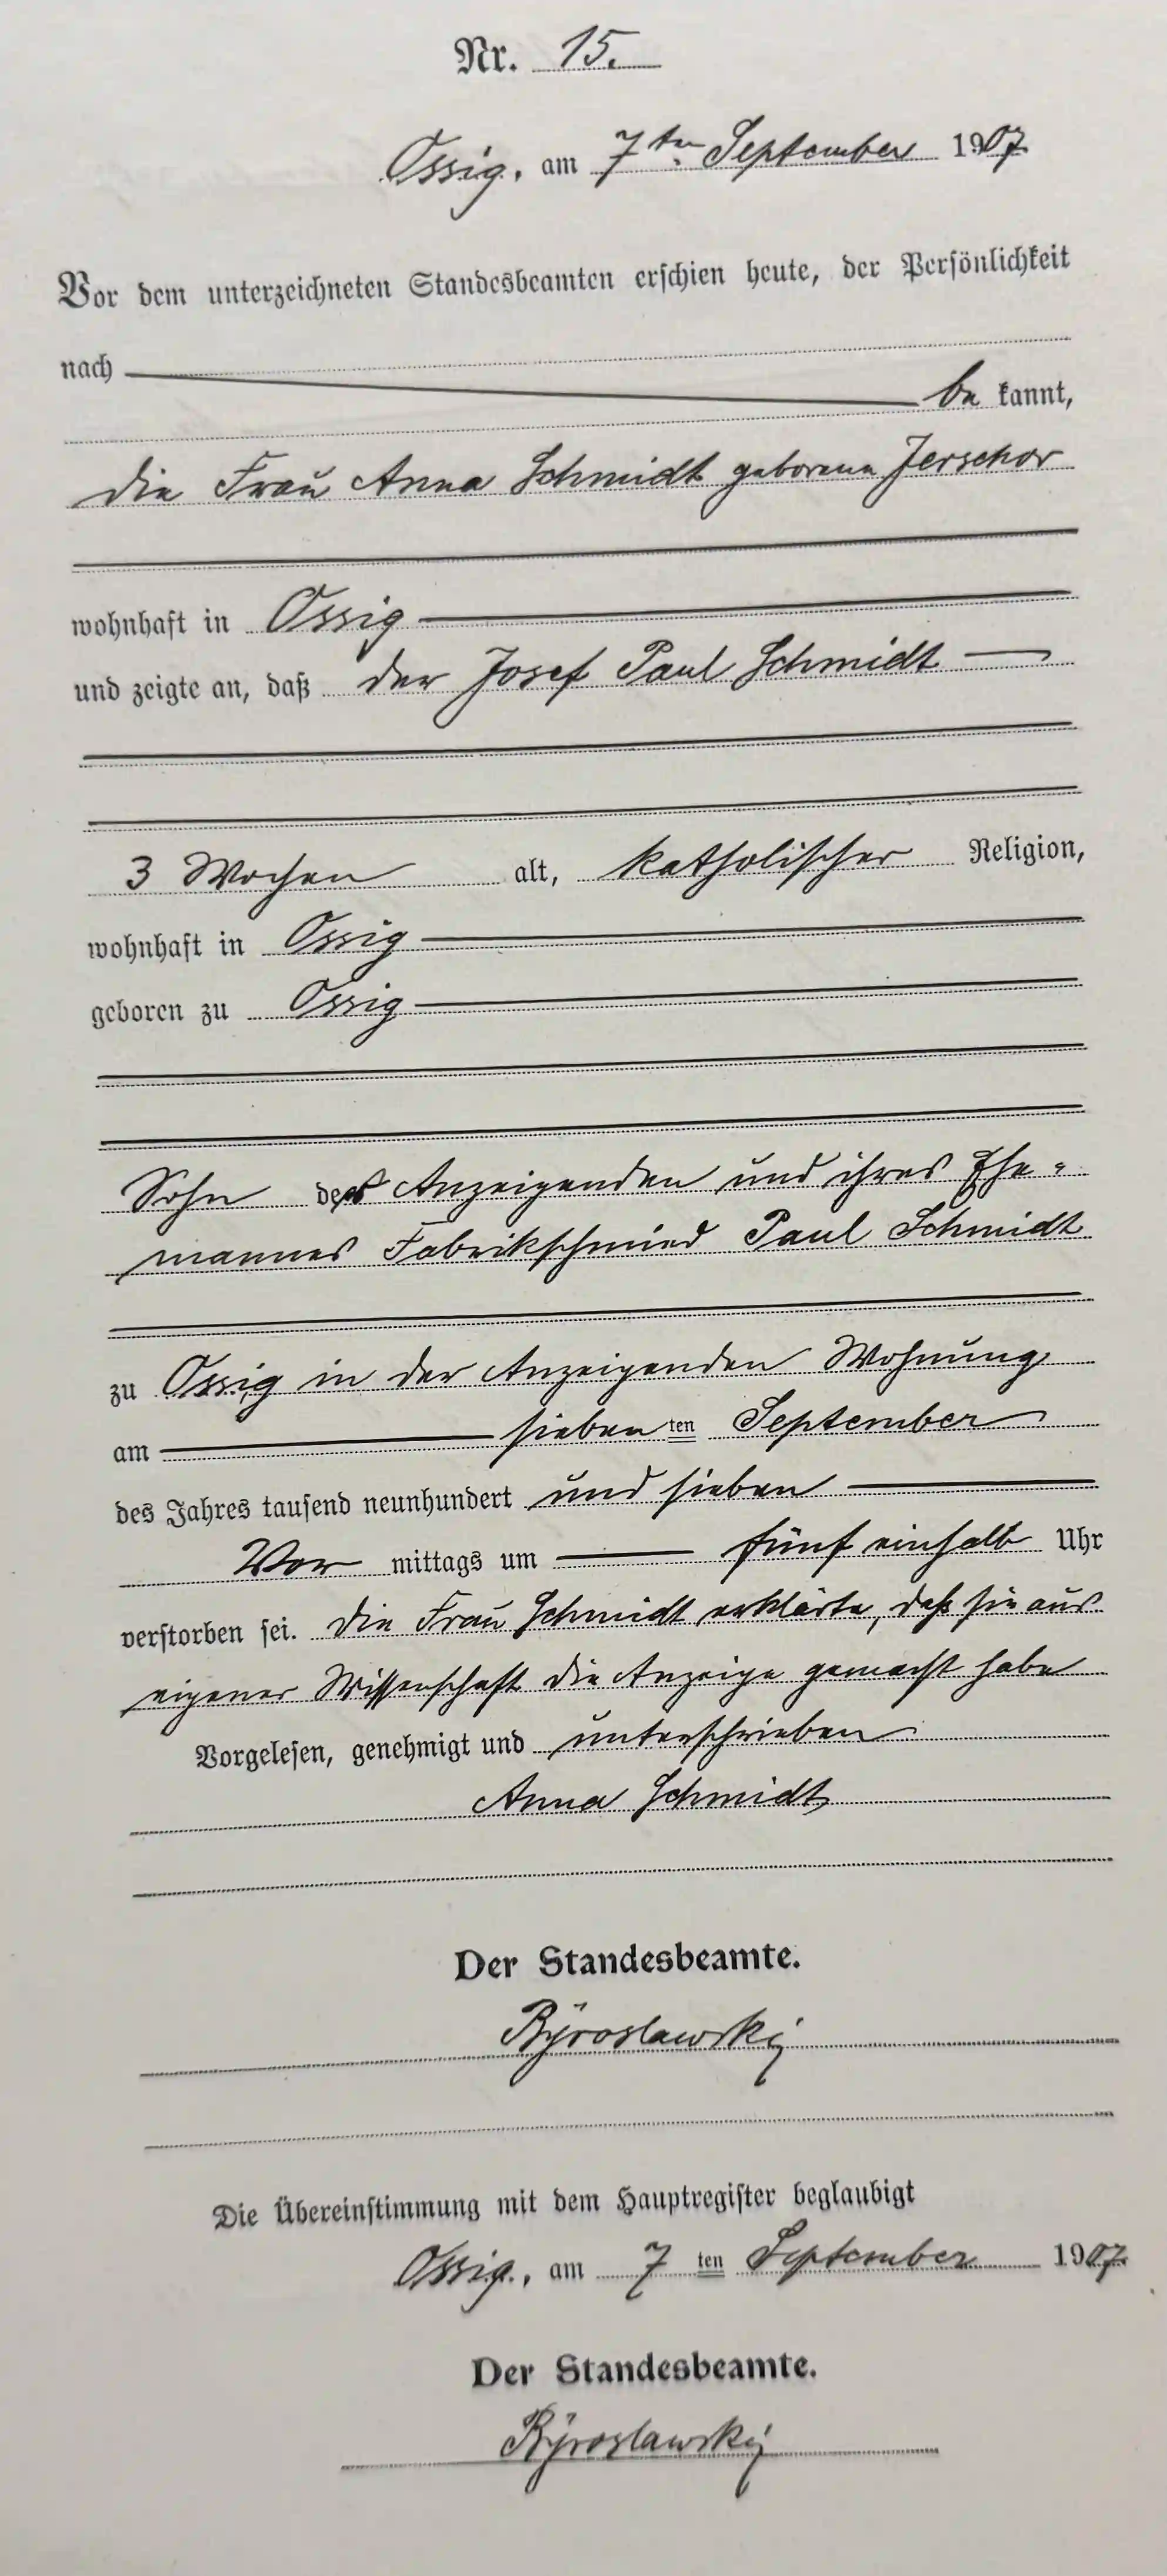 Nr. 15.
Ossig, am 7ten September 1907
Vor dem unterzeichneten Standesbeamten erschien heute, der Persönlichkeit
nach
be kannt,
die Frau Anna Schmidt geborene Jerschor
wohnhaft in Ossig
und zeigte an, daß der Josef Paul Schmidt
3 Wochen alt, katholischer Religion,
wohnhaft in Ossig
geboren zu Ossig
Sohn der Anzeigenden und ihres Ehe-
mannes Fabrikschmied Paul Schmidt
zu Ossig in der Anzeigenden Wohnung
am sieben ten September
des Jahres tausend neunhundert und sieben
Vor mittags um fünf einhalb Uhr
verstorben sei. Die Frau Schmidt erklärte, daß sie aus
eigener Wissenschaft die Anzeige gemacht habe
Vorgelesen, genehmigt und unterschrieben
Anna Schmidt
Der Standesbeamte.
Die Übereinstimmung mit dem Hauptregister beglaubigt
Ossig, am 7 ten September 1907.
Der Standesbeamte.